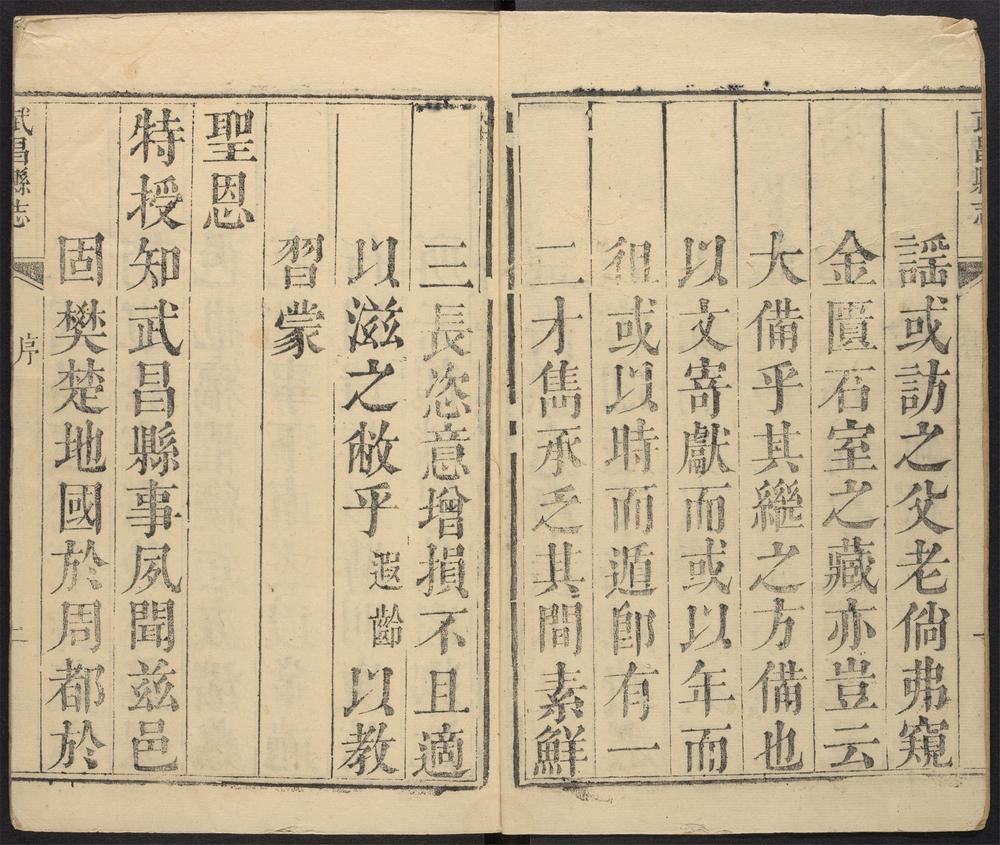 武昌縣志
謡或訪之父老倘弗窺
金匱石室之藏亦豈云
大備乎其繼之方備也
以文寄獻而或以年而
徂或以時而遁卽有一
二才雋承乏其間素鮮
三長恣意增損不且適
以滋之敝乎遐齡以教
習蒙
聖恩
特授知武昌縣事夙聞兹邑
固樊楚地國於周都於
武昌縣志
序